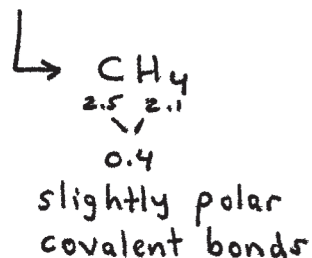 CH4
2.5 2.1
0.4
slightly polar
covalent bonds